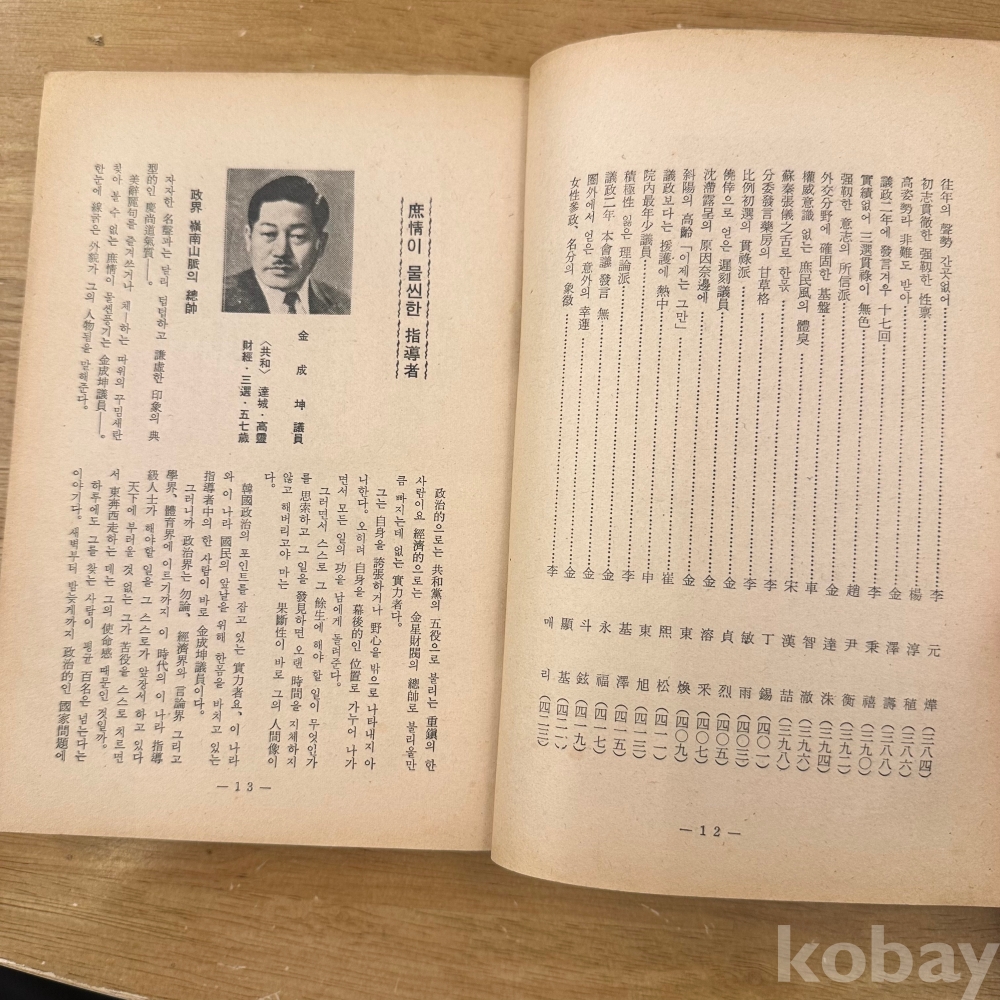 往年의 聲勢 간곳없어……李元燁(三八四)
初志貫徹한 强靭한 性禀……楊淳稙(三八六)
高姿勢라 非難도 받아……金澤壽(三八八)
議政二年에 發言겨우 十七回……李秉禧(三九〇)
實績없어 三選貫祿이 無色……趙尹衡(三九二)
强靭한 意志의 所信派……金達洙(三九四)
外交分野에 確固한 基盤……車智澈(三九六)
權威意識 없는 庶民風의 體臭……宋漢喆(三九八)
蘇秦張儀之舌로 한몫……李丁錫(四〇一)
分委發言藥房의 甘草格……李敏雨(四〇三)
比例初選의 貫祿派……金貞烈(四〇五)
僥倖으로 얻은 遲刻議員……金溶采(四〇七)
沈滯露呈의 原因奈邊에……金東煥(四〇九)
斜陽의 高齡「이제는 그만」……崔熙松(四一一)
議政보다는 援護에 熱中……申東旭
院內最年少議員……李基澤(四一五)
積極性 잃은 理論派……金永福(四一七)
議政二年 本會議 發言 無……金斗鉉(四一九)
圈外에서 얻은 意外의 幸運……金顯基(四二一)
女性參政、名分의 象徵……李매리(四二三)
—12—
庶情이 물씬한 指導者
金成坤 議員
〈共和〉 達城·高靈
財經·三選·五七歲
政界 嶺南山脈의 總帥
자자한 名聲과는 달리 텁텁하고 謙虛한 印象의 典
型的인 慶尙道氣質——。
美辭麗句를 즐겨쓰거나 체—하는 따위의 꾸밈새란
찾아 볼 수 없는 庶情이 물씬풍기는 金成坤議員——。
한눈에 線굵은 外貌가 그의 人物됨을 말해준다。
政治的으로는 共和黨의 五役으로 불리는 重鎭의 한
사람이요 經濟的으로는 金星財閥의 總帥로 불리울만
큼 빠지는데 없는 實力者다。
그는 自身을 誇張하거나 野心을 밖으로 나타내지 아
니한다。오히려 自身을 幕後的인 位置로 가누어 나가
면서 모든 일의 功을 남에게 돌려준다。
그러면서 스스로 그 餘生에 해야 할 일이 무엇인가
를 思索하고 그 일을 發見하면 오랜 時間을 지체하지
않고 해버리고야 마는 果斷性이 바로 그의 人間像이
다。
韓國政治의 포인트를 잡고 있는 實力者요、이 나라
와 이 나라 國民의 앞날을 위해 한몸을 바치고 있는
指導者中의 한 사람이 바로 金成坤議員이다。
그러니까 政治界는 勿論、經濟界와 言論界 그리고
學界、體育界에 이르기까지 이 時代의 이 나라 指導
級人士가 해야할 일을 그 스스로가 앞장서 하고 있다
天下에 부러울 것 없는 그가 苦役을 스스로 치르면
서 東奔西走하는 데는 그의 使命感 때문인 것일까。
하루에도 그를 찾는 사람이 평균 百名은 넘는다는
이야기다。새벽부터 밤늦게까지 政治的인 國家問題에
—13—
kobay